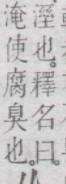 淫也。釋名曰。
淹使腐臭也。